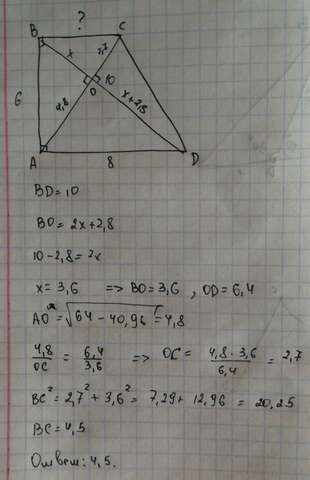 ?
B C
x 2,7
6 O 10
4,8 x+2,8
A 8 D
BD=10
BO=2x+2,8
10-2,8=2x
x=3,6 => BO=3,6, OD=6,4
AO=√64-40,96=4,8
4,8/OC=6,4/3,6 => OC=4,8·3,6/6,4=2,7
BC²=2,7²+3,6²=7,29+12,96=20,25
BC=4,5
Ответ: 4,5.